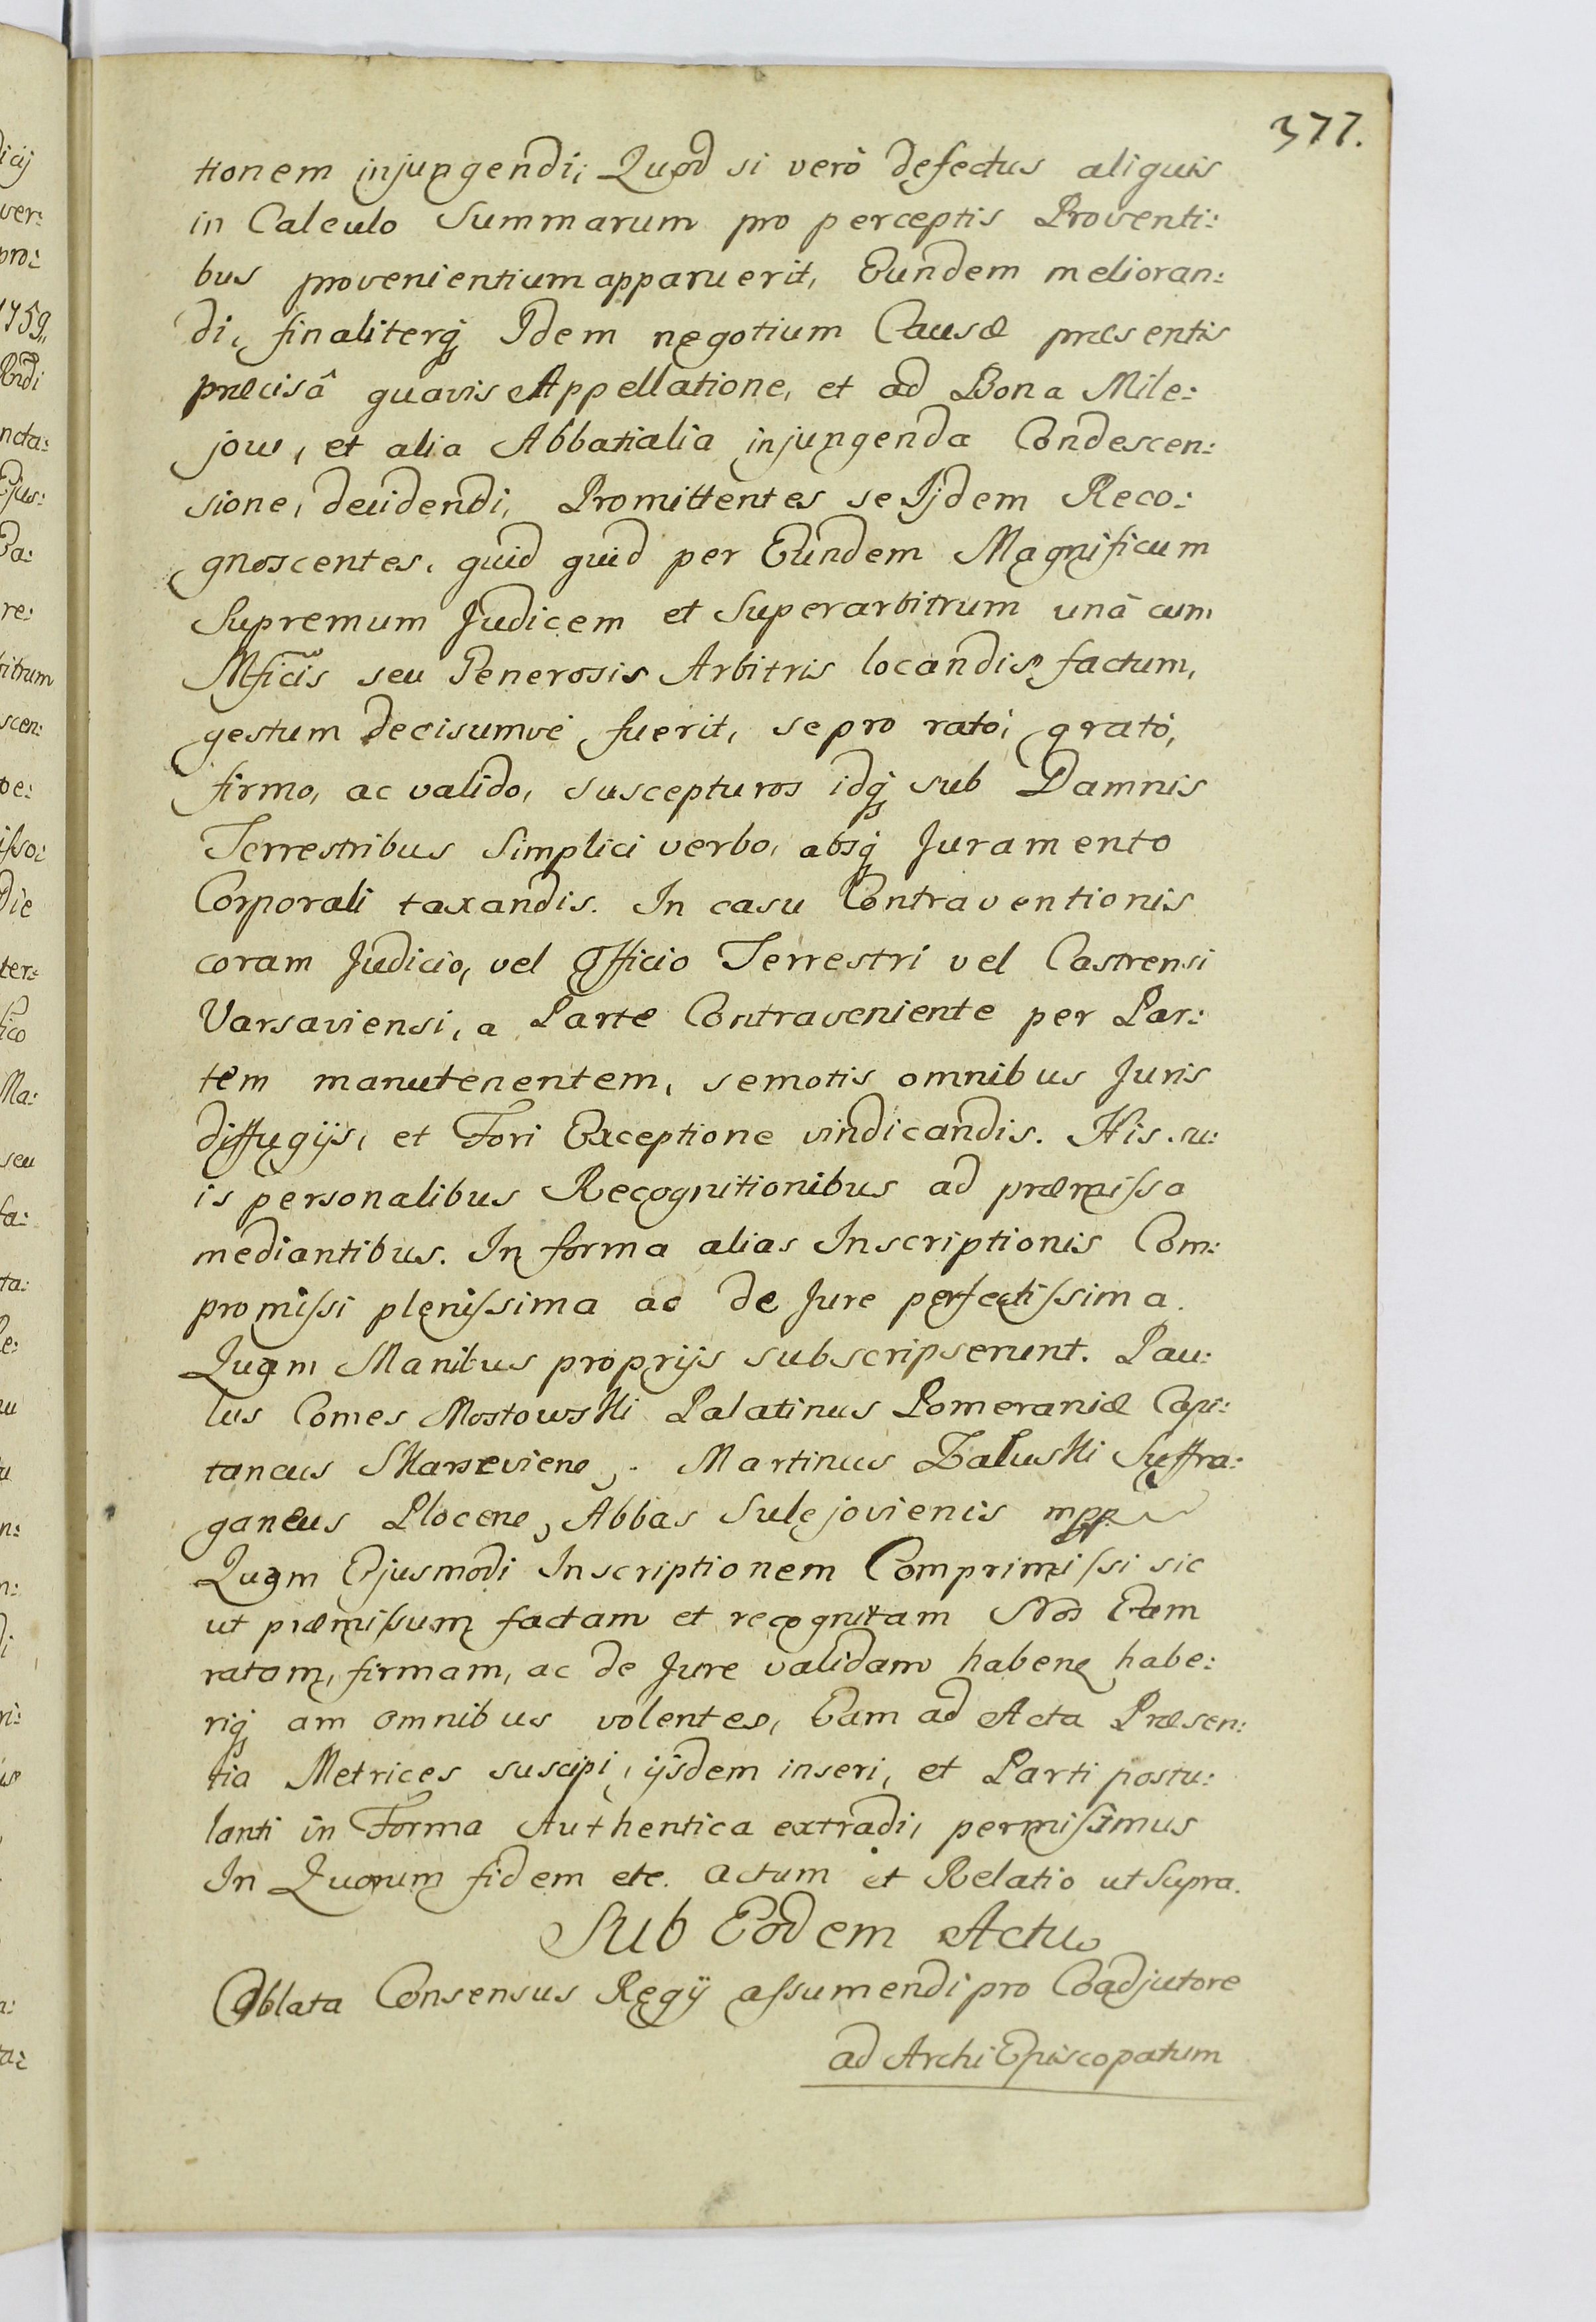 377.
tionem injungendi; Quod si verò defectus aliquis
in Calculo Summarum pro perceptis Proventi:
bus provenientium apparuerit, Eundem melioran:
di, finaliterq₃ Idem negotium Causæ præsentis
præcisâ quavis Appellatione, et ad Bona Mile:
jow, et alia Abbatialia injungenda Condescen:
sione, decidendi, Promittentes se Ijdem Reco:
gnoscentes, quid quid per Eundem Magnificum
Supremum Judicem et Superarbitrum unâ cum
Mficis seu Generosis Arbitris locandis factum,
gestum decisumvè fuerit, se pro ratò, gratò,
firmo, ac valido, suscepturos idq₃ sub Damnis
Terrestribus Simplici verbo, absq₃ Juramento
Corporali taxandis. In casu Contraventionis
coram Judicio, vel Officio Terrestri vel Castrensi
Varsaviensi, a Parte Contraveniente per Par:
tem manutenentem, semotis omnibus Juris
diffugijs, et Fori Exceptione vindicandis. His su:
is personalibus Recognitionibus ad præmissa
mediantibus. In forma alias Inscriptionis Com:
promissi plenissima ac de Jure perfectissima.
Quam Manibus proprijs subscripserunt. Pau:
lus Comes Mostowski Palatinus Pomeraniæ Capi:
taneus Skarseviene, . Martinus Zaluski Suffra:
ganeus Plocene, Abbas Sulejovienis mpp
Quam Ejusmodi Inscriptionem Comprimissi sic
ut præmissum factam et recognitam Nos Eam
ratam, firmam, ac de Jure validam habene habe:
riq₃ am omnibus volentes, Eam ad Acta Præsen:
tia Metrices suscipi, ijsdem inseri, et Parti postu:
lanti in Forma Authentica extradi, permisimus
In Quorum fidem etc. Actum et Relatio ut Supra.
Sub Eodem Actu
Oblata Consensus Regij assumendi pro Coadjutore
ad Archi Episcopatum